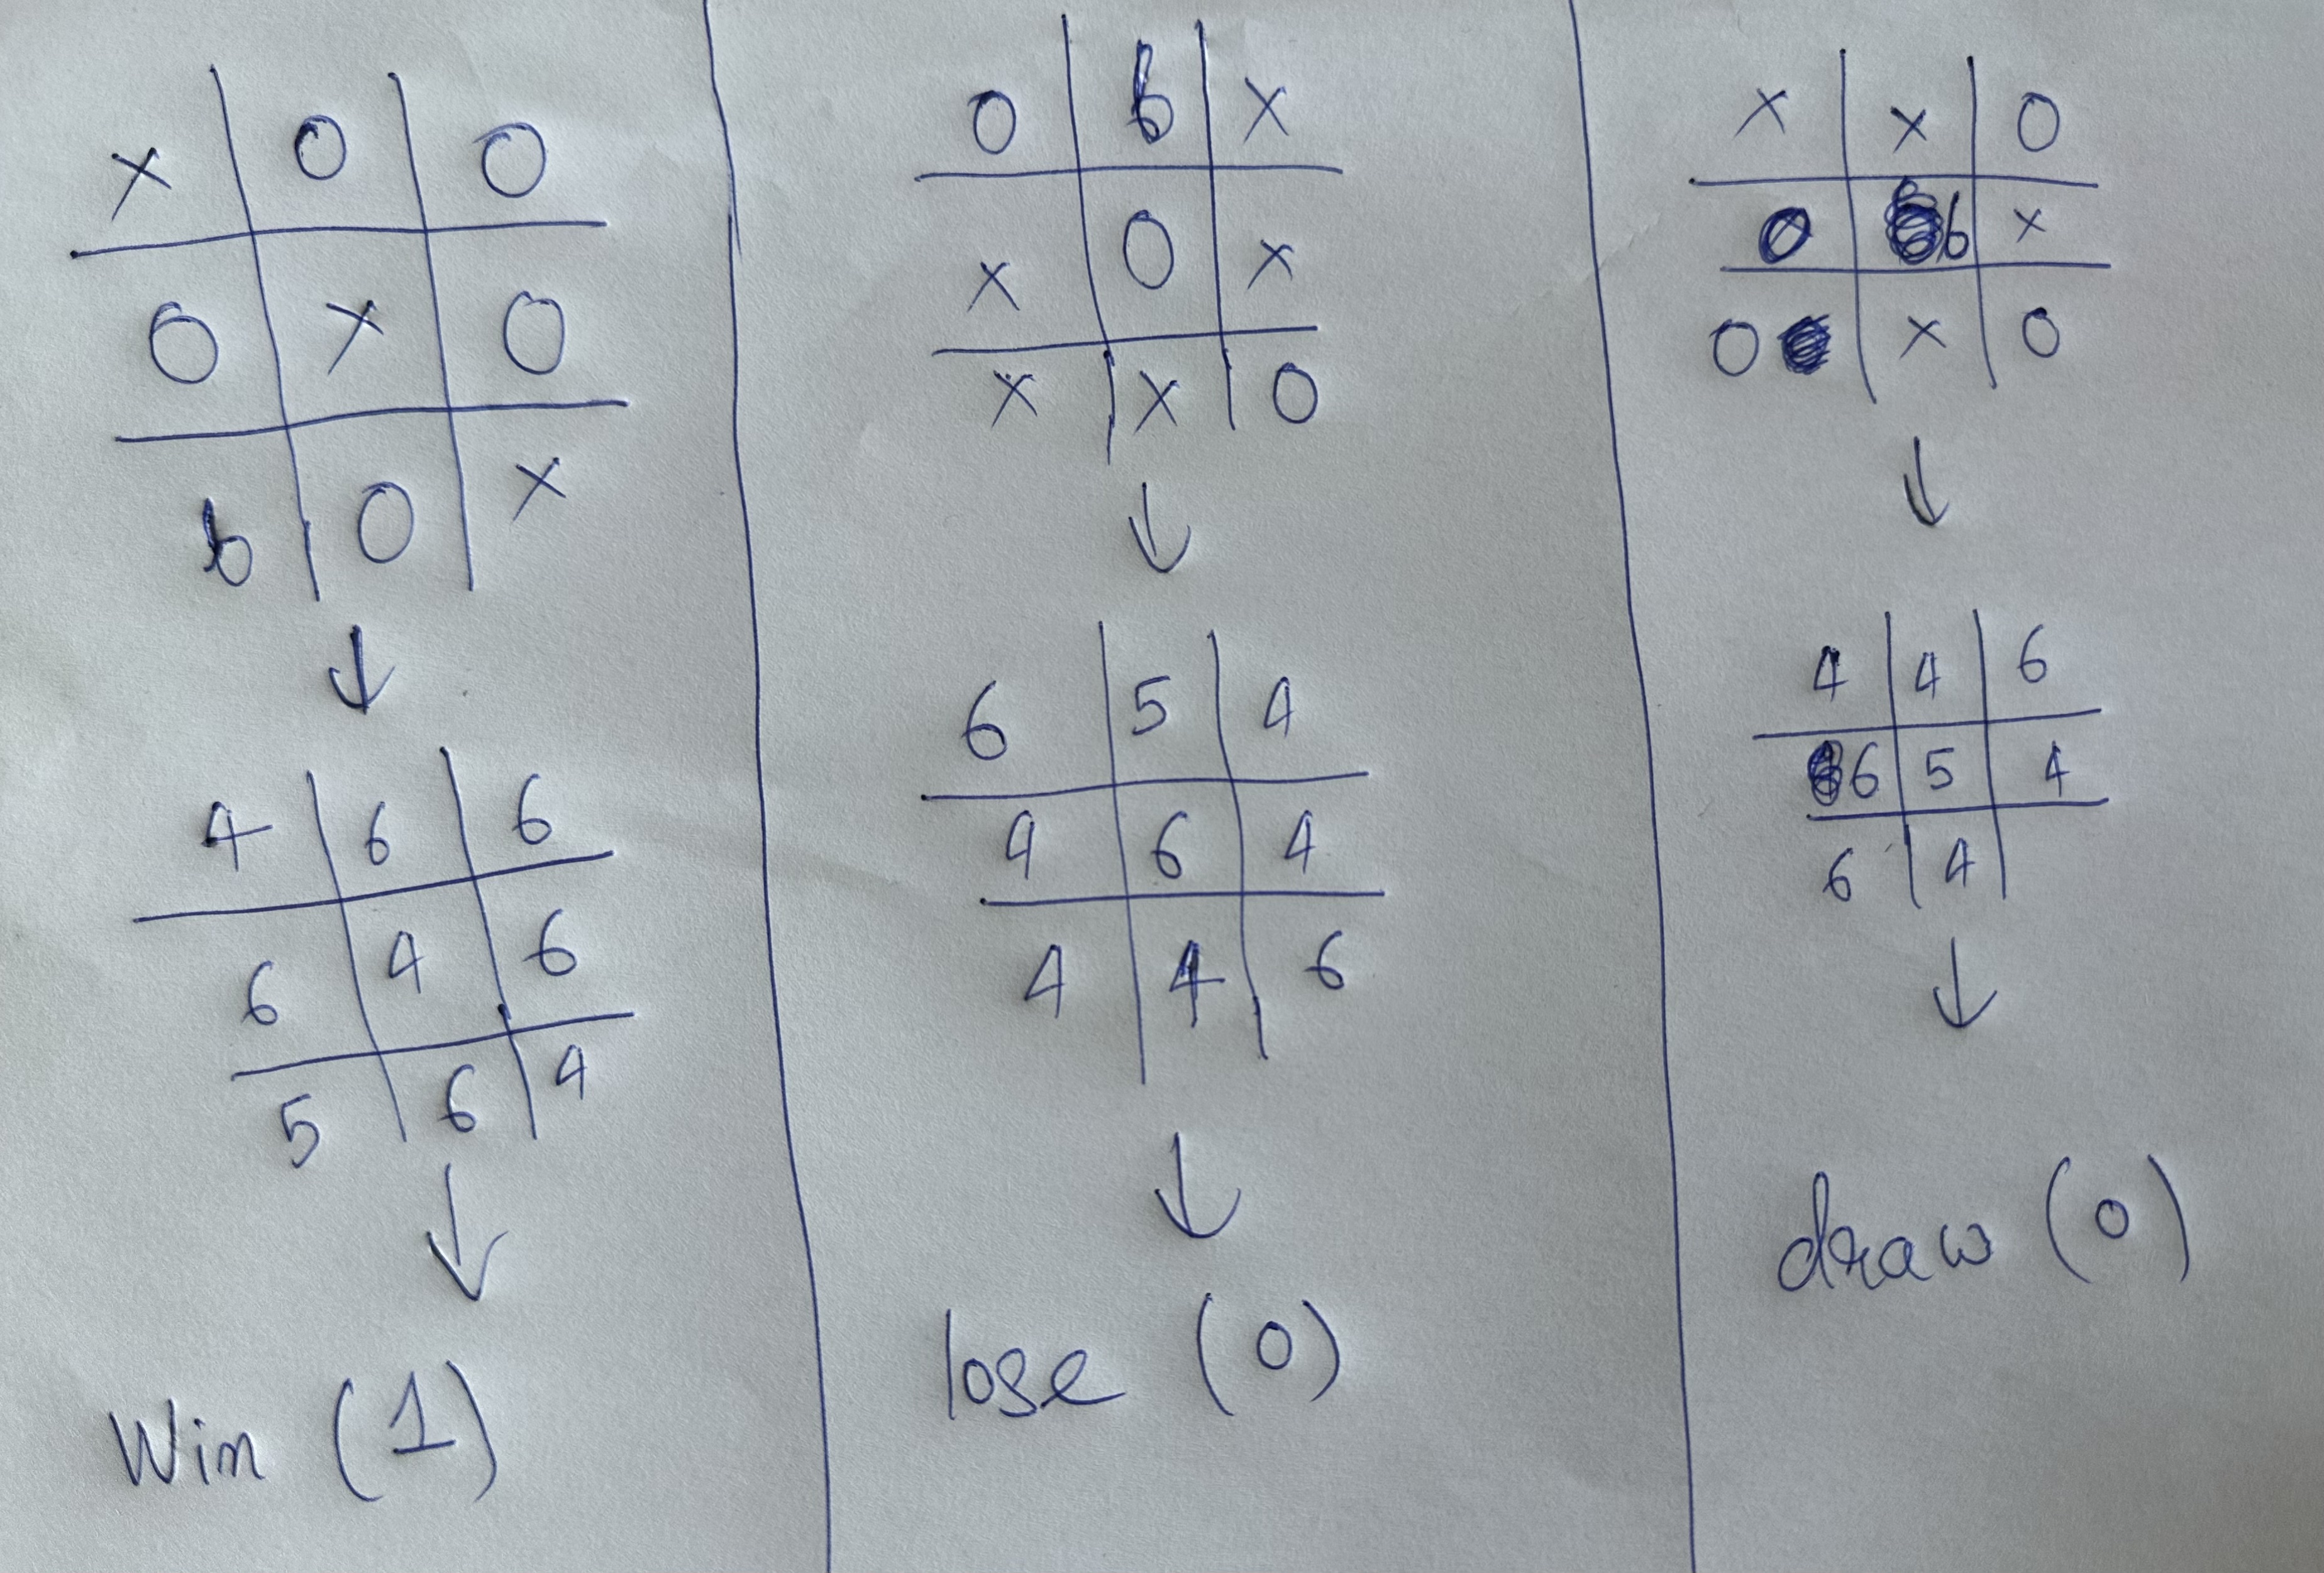 x o o
o x o
b o x
↓
4 6 6
6 4 6
5 6 4
↓
Win (1)
o b x
x o x
x x o
↓
6 5 4
4 6 4
4 4 6
↓
lose (0)
x x o
o b x
o x o
↓
4 4 6
6 5 4
6 4
↓
draw (0)